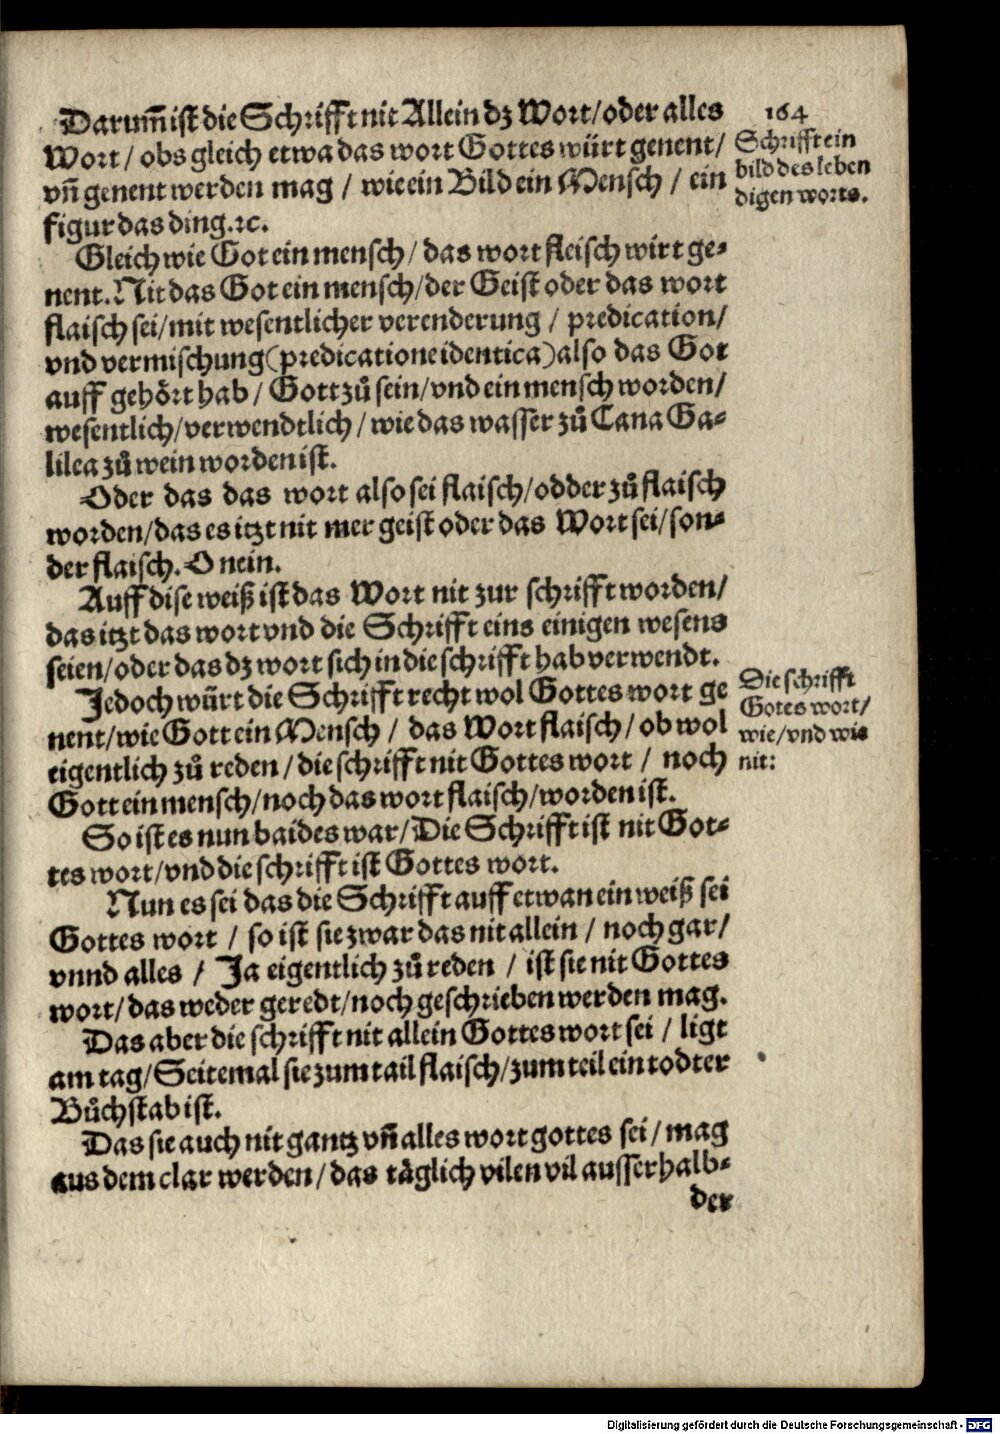 164
Darum̄ ist die Schrifft nit Allein dz Wort / oder alles
Wort / obs gleich etwa das wort Gottes würt genent /
vn̄ genent werden mag / wie ein Bild ein Mensch / ein
figur das ding. ꝛc.
Schrifft ein
bild des leben
digen worts.
Gleich wie Got ein mensch / das wort fleisch wirt ge⸗
nent. Nit das Got ein mensch / der Geist oder das wort
flaisch sei / mit wesentlicher verenderung / predication /
vnd vermischung (predicatione identica) also das Got
auff gehört hab / Gott zů sein / vnd ein mensch worden /
wesentlich / verwendtlich / wie das wasser zů Cana Ga⸗
lilea zů wein worden ist.
Oder das das wort also sei flaisch / odder zů flaisch
worden / das es itzt nit mer geist oder das Wort sei / son⸗
der flaisch. O nein.
Auff dise weiß ist das Wort nit zur schrifft worden /
das itzt das wort vnd die Schrifft eins einigen wesens
seien / oder das dz wort sich in die schrifft hab verwendt.
Jedoch würt die Schrifft recht wol Gottes wort ge
nent / wie Gott ein Mensch / das Wort flaisch / ob wol
eigentlich zů reden / die schrifft nit Gottes wort / noch
Gott ein mensch / noch das wort flaisch / worden ist.
Die schrifft
Gotes wort /
wie / vnd wie
nit:
So ist es nun baides war / Die Schrifft ist nit Got⸗
tes wort / vnd die schrifft ist Gottes wort.
Nun es sei das die Schrifft auff etwan ein weiß sei
Gottes wort / so ist sie zwar das nit allein / noch gar /
vnnd alles / Ja eigentlich zů reden / ist sie nit Gottes
wort / das weder geredt / noch geschrieben werden mag.
Das aber die schrifft nit allein Gottes wort sei / ligt
am tag / Seitemal sie zum tail flaisch / zum teil ein todter
Bůchstab ist.
Das sie auch nit gantz vn̄ alles wort gottes sei / mag
aus dem clar werden / das täglich vilen vil ausserhalb⸗
der
Digitalisierung gefördert durch die Deutsche Forschungsgemeinschaft - DFG